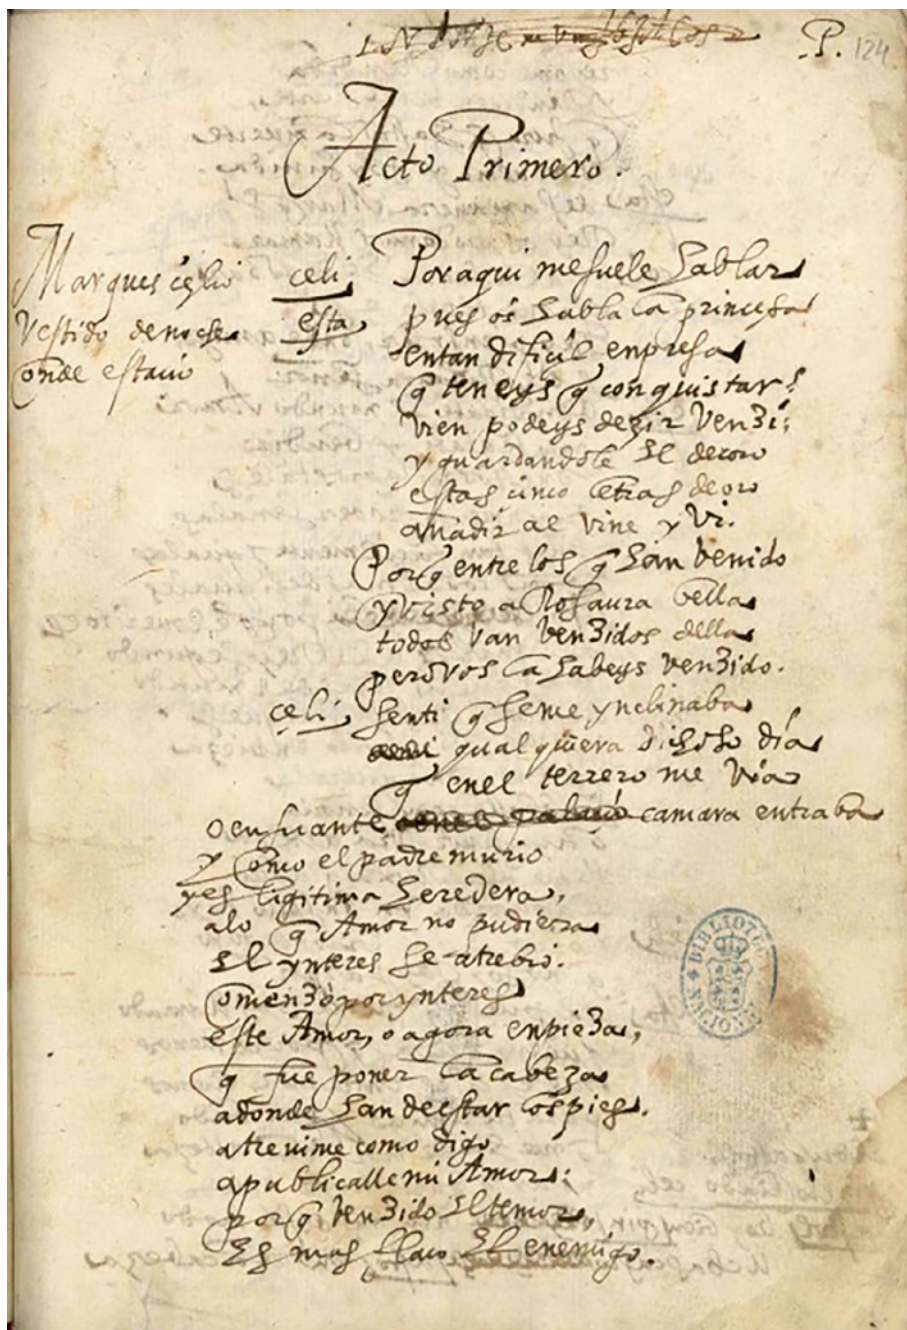 P. 124
Acto Primero.
Marques çelio
Vestido de noche
Conde estaçio
çeli Por aqui me suele hablar
esta pues os habla la princesa
en tan difiçil enpresa
q teneys q conquistar?
vien podeys dezir Venzi;
y guardandole el decoro
estas cinco letras de oro
añadir al vine y Vi.
Porq entre los q han benido
y visto a Rosaura bella
todos van benzidos della
pero vos la habeys venzido.
çeli senti q se me ynclinaba
qualquiera dichoso dia
q en el terrero me via
o en su ante camara entraba
y como el padre murio
y es ligitima heredera,
a lo q Amor no pudiera
el ynteres se atrebio.
Comenzo por ynteres
este Amor, o agora enpieza,
q fue poner la cabeza
adonde han de estar los pies.
atreuime como digo
a publicalle mi Amor:
porq benzido el temor,
Es mas flaco El enemigo.
BIBLIOTECA NACIONAL